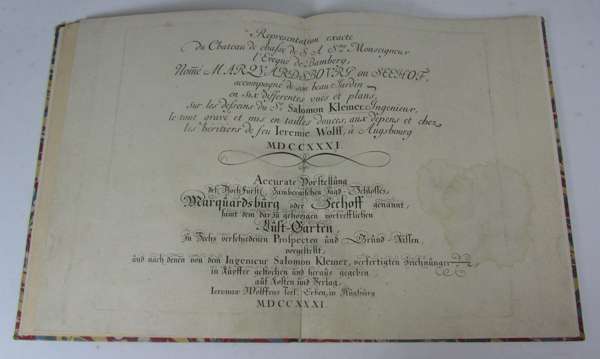 Representation exacte
du Chateau de chasse de S. A. Sme. Monseigneur
l'Eveque de Bamberg,
Nomé MARQVARDSBOVRG ou SEEHOF,
accompagné de son beau Jardin
en six differentes vuës et plans,
Sur les desseins du Sr. Salomon Kleiner, Ingenieur,
le tout gravé et mis en tailles douces, aux depens et chez
les heritiers de feu Ieremie Wolff, à Augsbourg
MDCCXXXI.
Accurate Vorstellung
deß Hoch-Fürstl. Bambergischen Jagd-Schlosses,
Marquardsburg oder Seehoff genannt,
samt dem darzu gehörigen vortrefflichen
Lust-Garten,
In Sechs verschiedenen Prospecten und Grund-Rissen,
vorgestellt,
und nach denen von dem Ingenieur Salomon Kleiner, verfertigten Zeichnungen,
in Kupffer gestochen und heraus gegeben,
auf Kosten und Verlag,
Ieremiæ Wolffens seel. Erben, in Augsburg
MDCCXXXI.